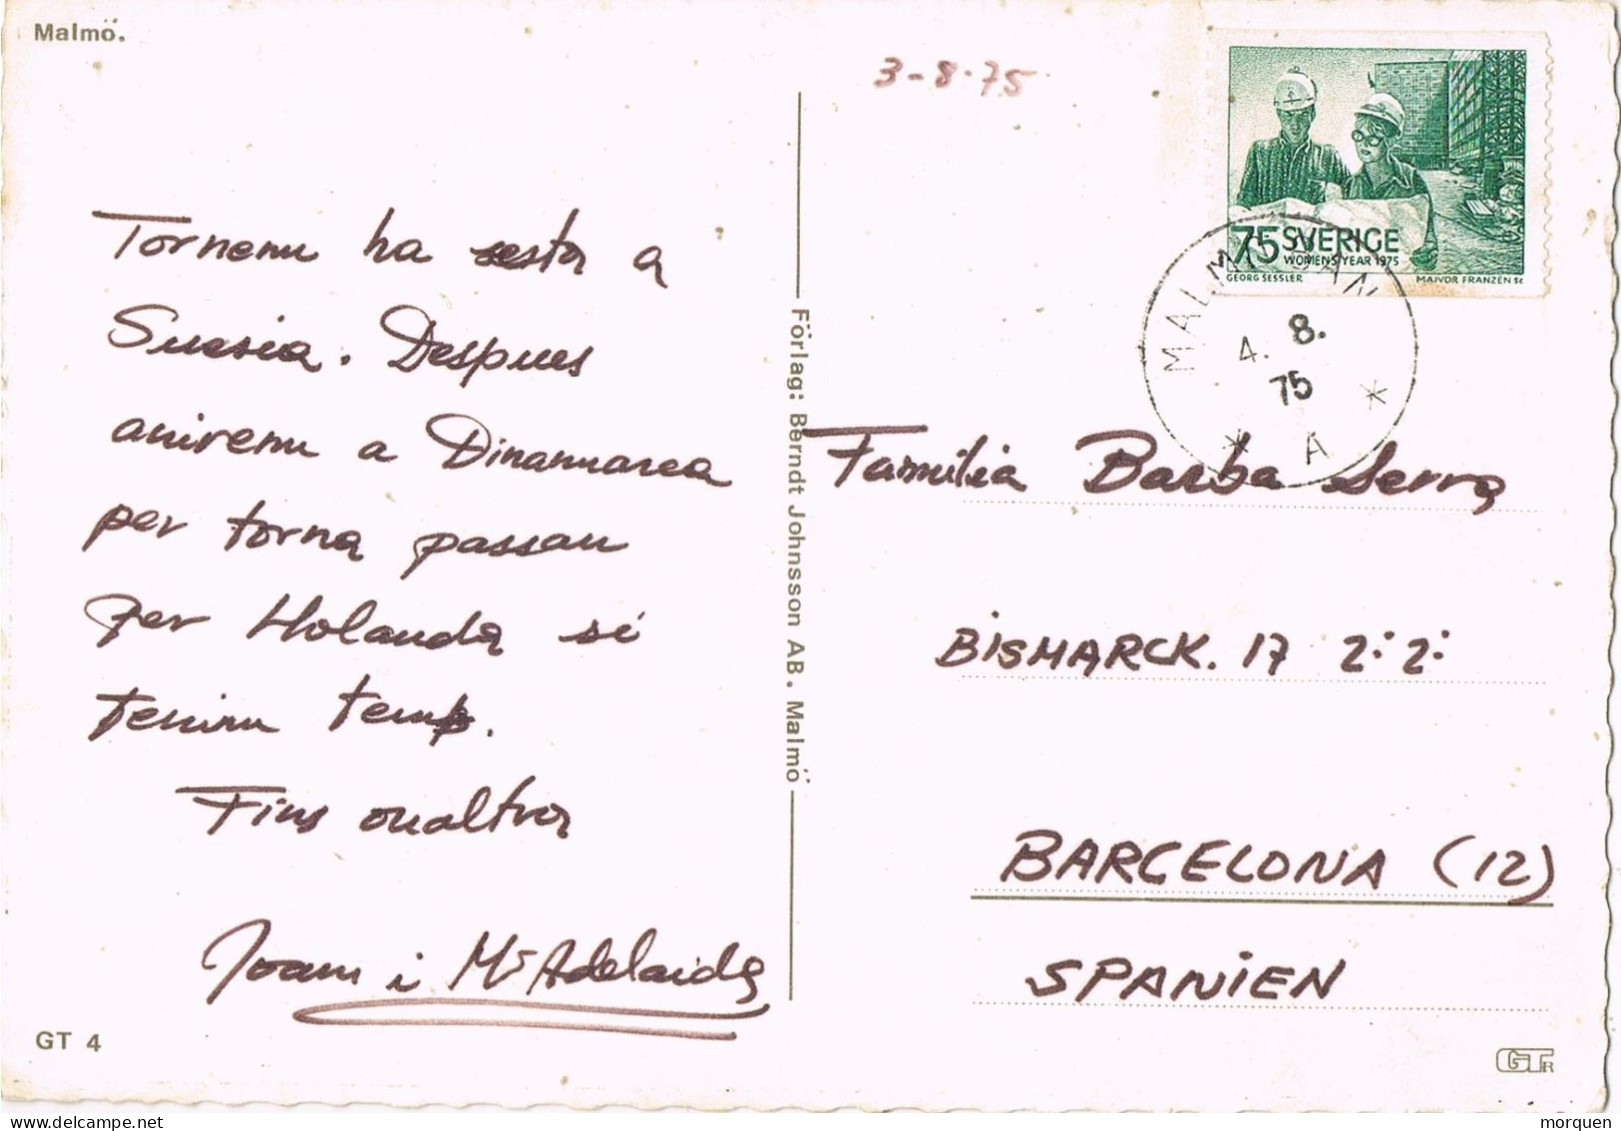 Malmö.
3-8-75
75 SVERIGE
WOMEN'S YEAR 1975
GEORG SESSLER MAJVOR FRANZÉN SC
MALMÖ BAN
4. 8.
75
* A *
Tornem ha esta a
Suesia. Despues
anirem a Dinamarca
per torna passan
per Holanda si
tenim temps.
Fins un altra
Joam i Mª Adelaida
GT 4
Förlag: Berndt Johnsson AB. Malmö
Familia Barba Serra
BISMARCK. 17 2: 2:
BARCELONA (12)
SPANIEN
GTR
morquen